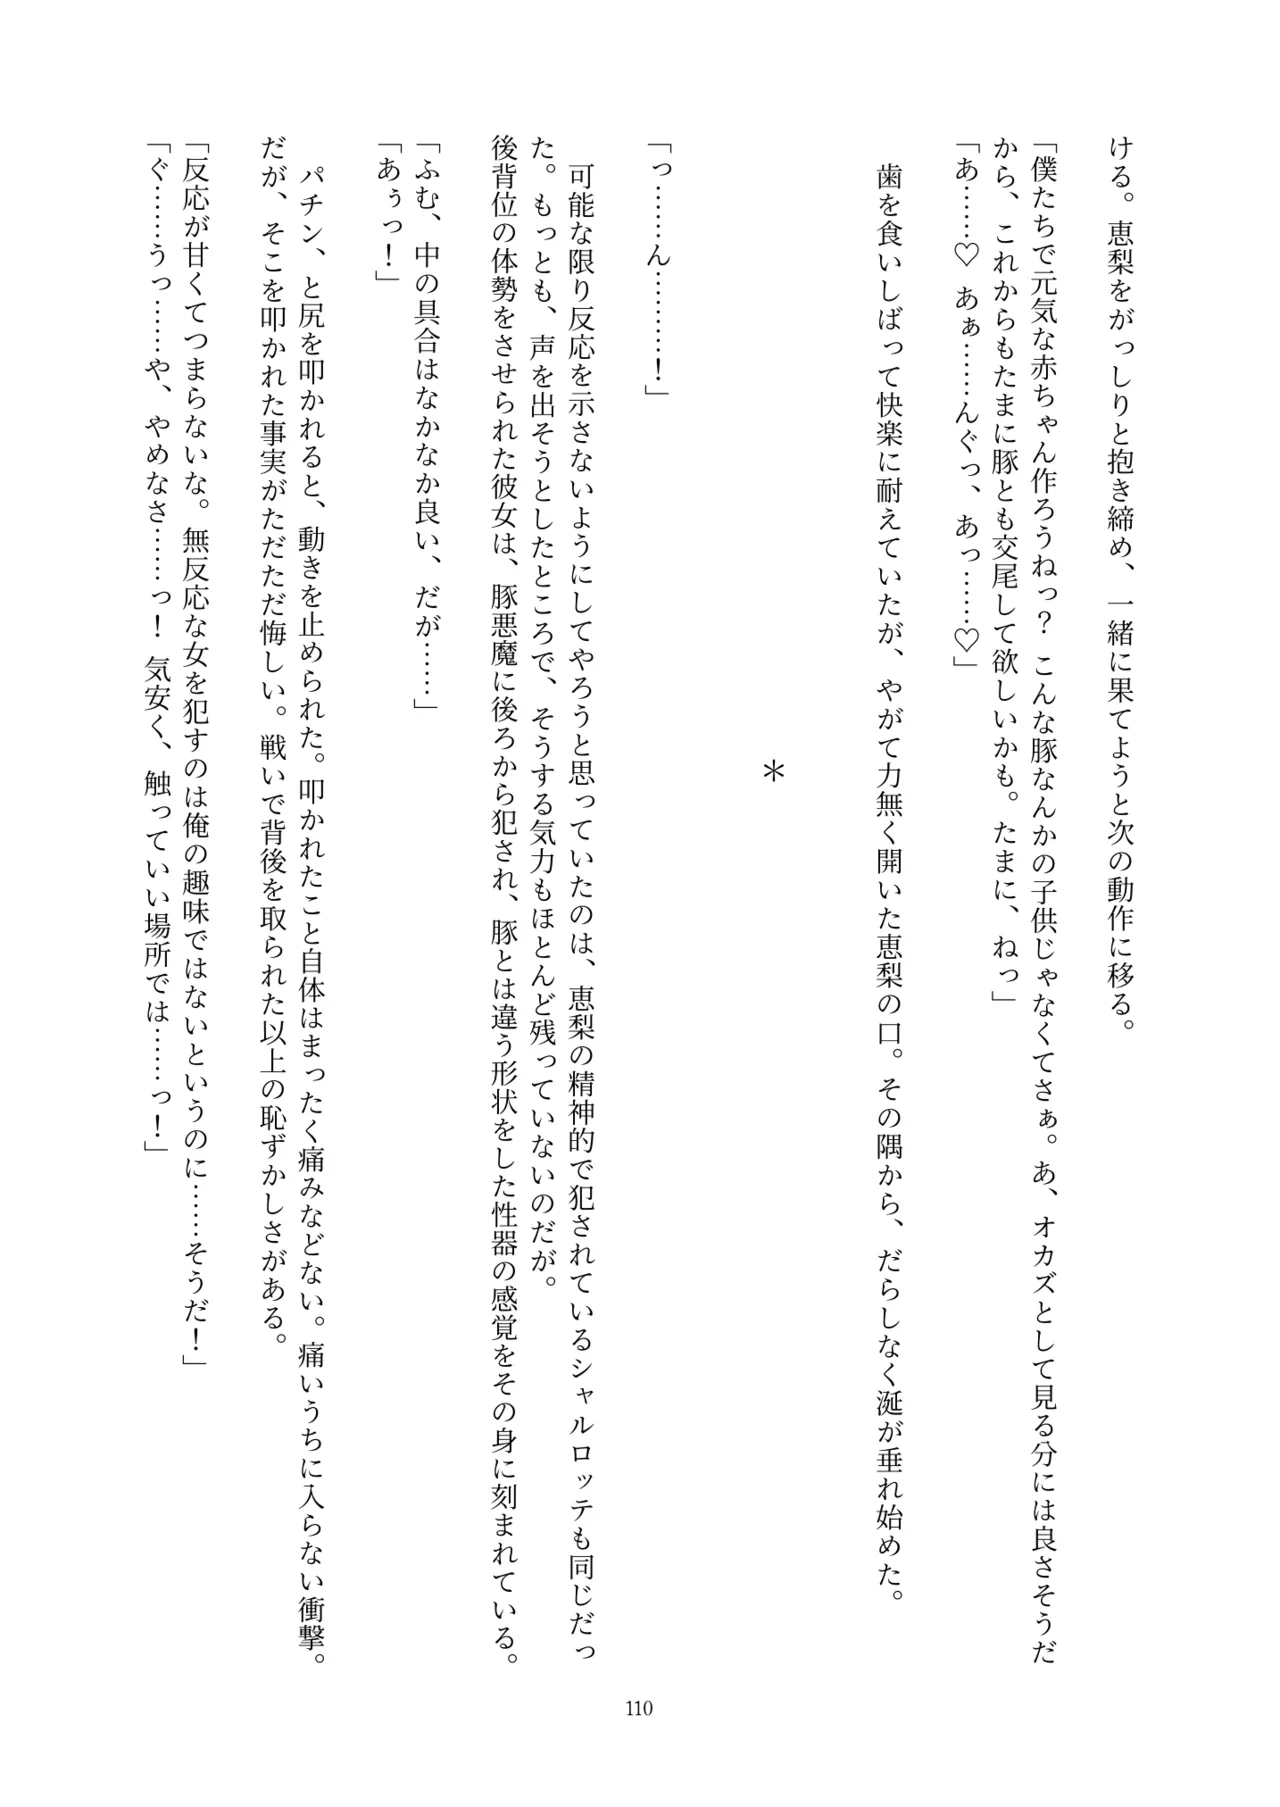 ける。恵梨をがっしりと抱き締め、一緒に果てようと次の動作に移る。
「僕たちで元気な赤ちゃん作ろうねっ？ こんな豚なんかの子供じゃなくてさぁ。あ、オカズとして見る分には良さそうだ
から、これからもたまに豚とも交尾して欲しいかも。たまに、ねっ」
「あ……♡ あぁ……んぐっ、あっ……♡」
歯を食いしばって快楽に耐えていたが、やがて力無く開いた恵梨の口。その隅から、だらしなく涎が垂れ始めた。
＊
「っ……ん………！」
可能な限り反応を示さないようにしてやろうと思っていたのは、恵梨の精神的で犯されているシャルロッテも同じだっ
た。もっとも、声を出そうとしたところで、そうする気力もほとんど残っていないのだが。
後背位の体勢をさせられた彼女は、豚悪魔に後ろから犯され、豚とは違う形状をした性器の感覚をその身に刻まれている。
「ふむ、中の具合はなかなか良い、だが……」
「あぅっ！」
パチン、と尻を叩かれると、動きを止められた。叩かれたこと自体はまったく痛みなどない。痛いうちに入らない衝撃。
だが、そこを叩かれた事実がただただ悔しい。戦いで背後を取られた以上の恥ずかしさがある。
「反応が甘くてつまらないな。無反応な女を犯すのは俺の趣味ではないというのに……そうだ！」
「ぐ……うっ……や、やめなさ……っ！ 気安く、触っていい場所では……っ！」
110